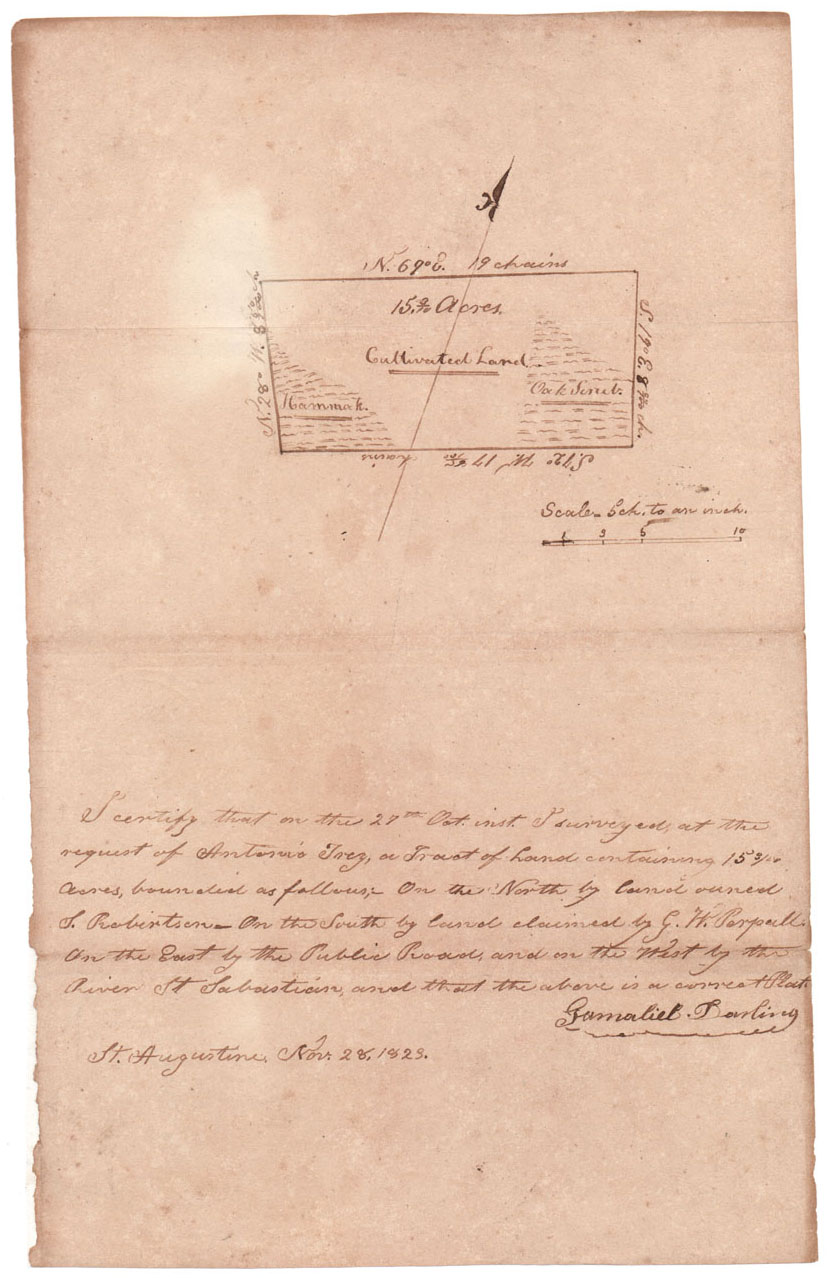 N. 69° E. 19 chains
15 Acres.
Cultivated Land
Oak Scrub.
Hammak.
N. 28° W. 8 ch
S. 19° E. 8 ch.
S. 72 W 17 chains
Scale – 5 ch. to an inch.
1 3 5 10
I certify that on the 27th Oct. inst. I surveyed, at the
request of Antonio Trez, a Tract of Land containing 15
Acres, bounded as follows;– On the North by land owned
Robertson – On the South by land claimed by G. W. Perpall.
On the East by the Public Road, and on the West by the
River St Sabastián, and that the above is a correct Plat.
Gamaliel Darling
St. Augustine, Nov. 28, 1823.